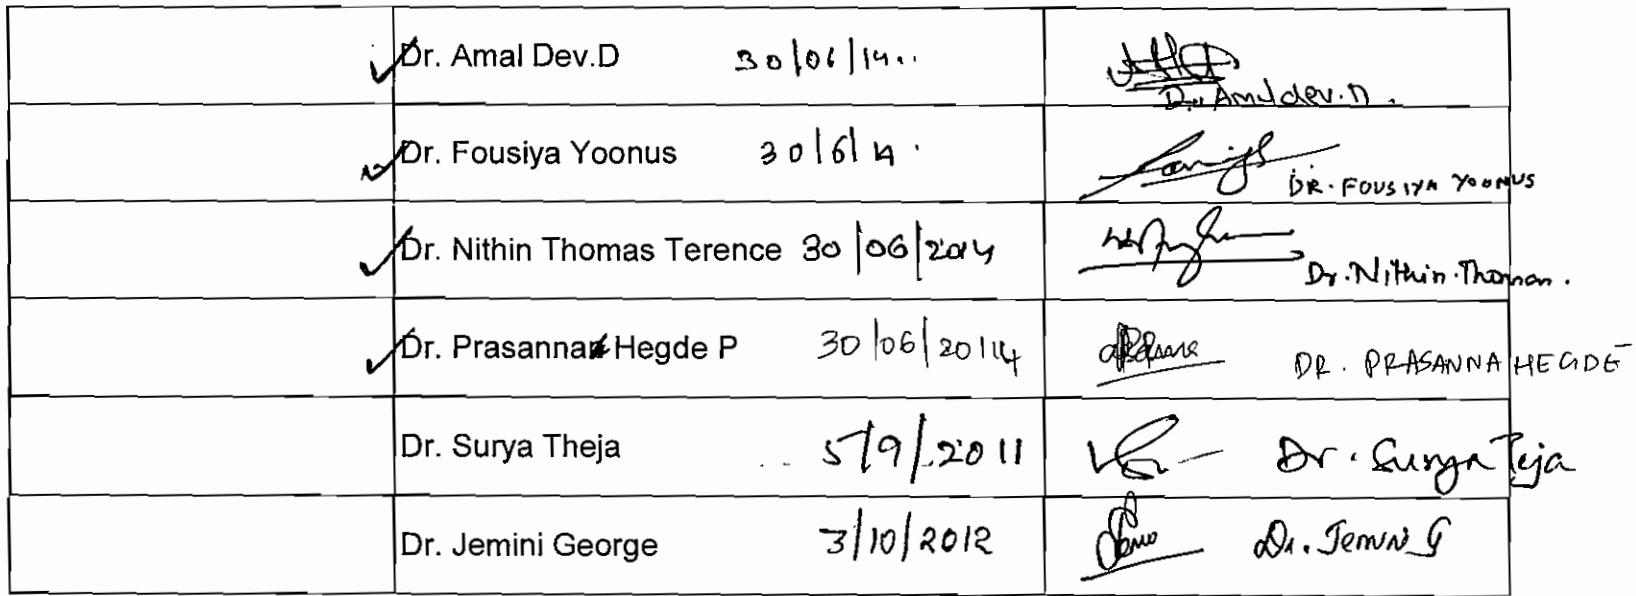 Dr. Amal Dev.D 30/06/14..
Dr. Amaldev.D.
Dr. Fousiya Yoonus 30/6/14.
DR. FOUSIYA YOONUS
Dr. Nithin Thomas Terence 30/06/2014
Dr. Nithin Thomas.
Dr. Prasanna Hegde P 30/06/2014 DR. PRASANNA HEGDE
Dr. Surya Theja 5/9/2011 Dr. Surya Teja
Dr. Jemini George 3/10/2012 Dr. Jemini G